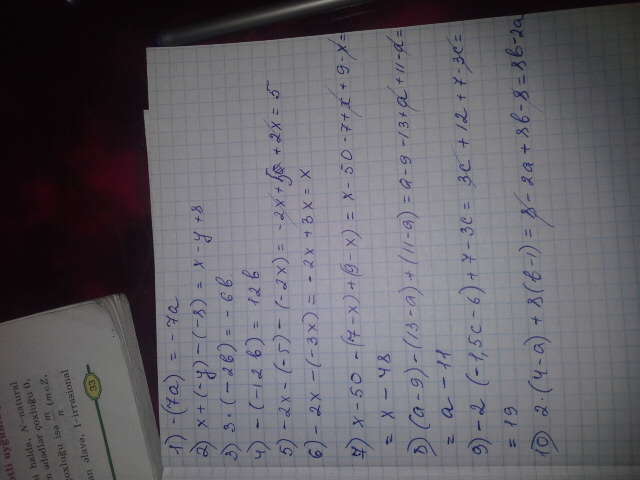 1) -(7a) = -7a
2) x+(-y)-(-8) = x-y+8
3) 3·(-2b) = -6b
4) -(-12b) = 12b
5) -2x-(-5)-(-2x) = -2x+5+2x = 5
6) -2x-(-3x) = -2x+3x = x
7) x-50-(7-x)+(9-x) = x-50-7+x+9-x =
= x-48
8) (a-9)-(13-a)+(11-a) = a-9-13+a+11-a =
= a-11
9) -2(-1,5c-6)+7-3c = 3c+12+7-3c =
= 19
10) 2·(4-a)+8(b-1) = 8-2a+8b-8 = 8b-2a
halda, N-natural
ədədlər çoxluğu
çoxluğu isə
əlavə, I-irrasional
33